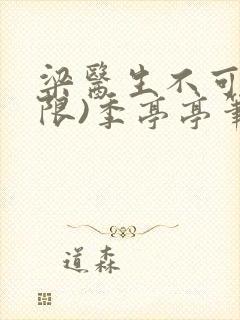 梁醫生不可
限)季亭亭筆
道森